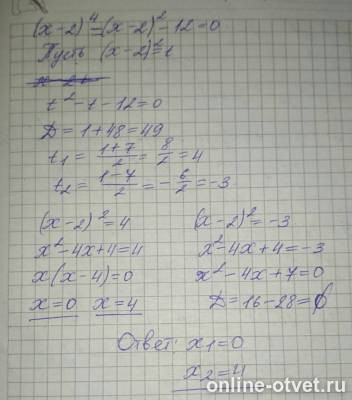 (x-2)⁴-(x-2)²-12=0
Пусть (x-2)²=t
t²-t-12=0
D=1+48=49
t₁=(1+7)/2=8/2=4
t₂=(1-7)/2=-6/2=-3
(x-2)²=4
x²-4x+4=4
x(x-4)=0
x=0 x=4
(x-2)²=-3
x²-4x+4=-3
x²-4x+7=0
D=16-28=
Ответ: x₁=0
x₂=4
online-otvet.ru